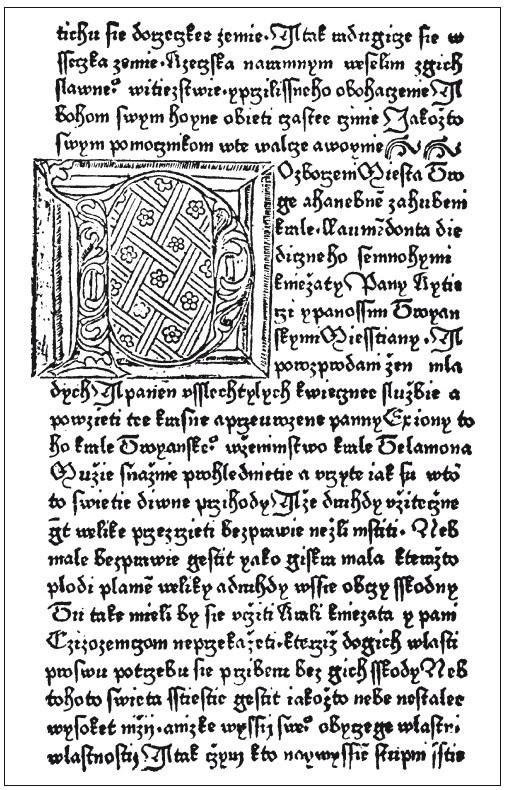 tichu sie dorzeczkee zemie. A tak radugicze sie w
sseczka zemie. Rzeczska naramnym weselim zgich
slawneº witiezstwie.yprzilissneho obohaczenie A
bohom swym hoyne obieti czastee czinie Jakožto
swym pomocznikom wte walcze awoynie
DOzborzeni Miesta Tro
ge ahanebne zahubeni
krale. Laumedonta die
diczneho semnohymi
kniežaty Pany Rytie
rzi ypanossim Troyan
skymi Miesstiany. A
porozprodani žen mla
dych A panen vsslechtylych kwiecznee službie a
powzieti tee krasne aprzeurozene panny Exiony to
ho krale Troyanskeº wženinstwo krale Telamona
Mužie snažnie prohlednietie a vzrzte iak su wtō
to swietie diwne przihody A že druhdy vžiteczne
gt welike przezrzieti bezprawie nežli mstiti. Neb
male bezprawie gestit yako giskra mala kteražto
plodi plamē weliky adruhdy wssie obczy sskodny
Tu take mieli by sie vcžiti Krali kniezata y pani
Czizozemczom neprzekažeti.kteržiž dogich wlasti
proswu potrzebu sie prziberu bez gich sskody Neb
tohoto swieta sstiestie gestit iakožto nebe nestalee
wysoket niži.anizke wyssij sweº obyczege wlastni
wlastnosti A tak cžym kto naywyssie stupni sstie